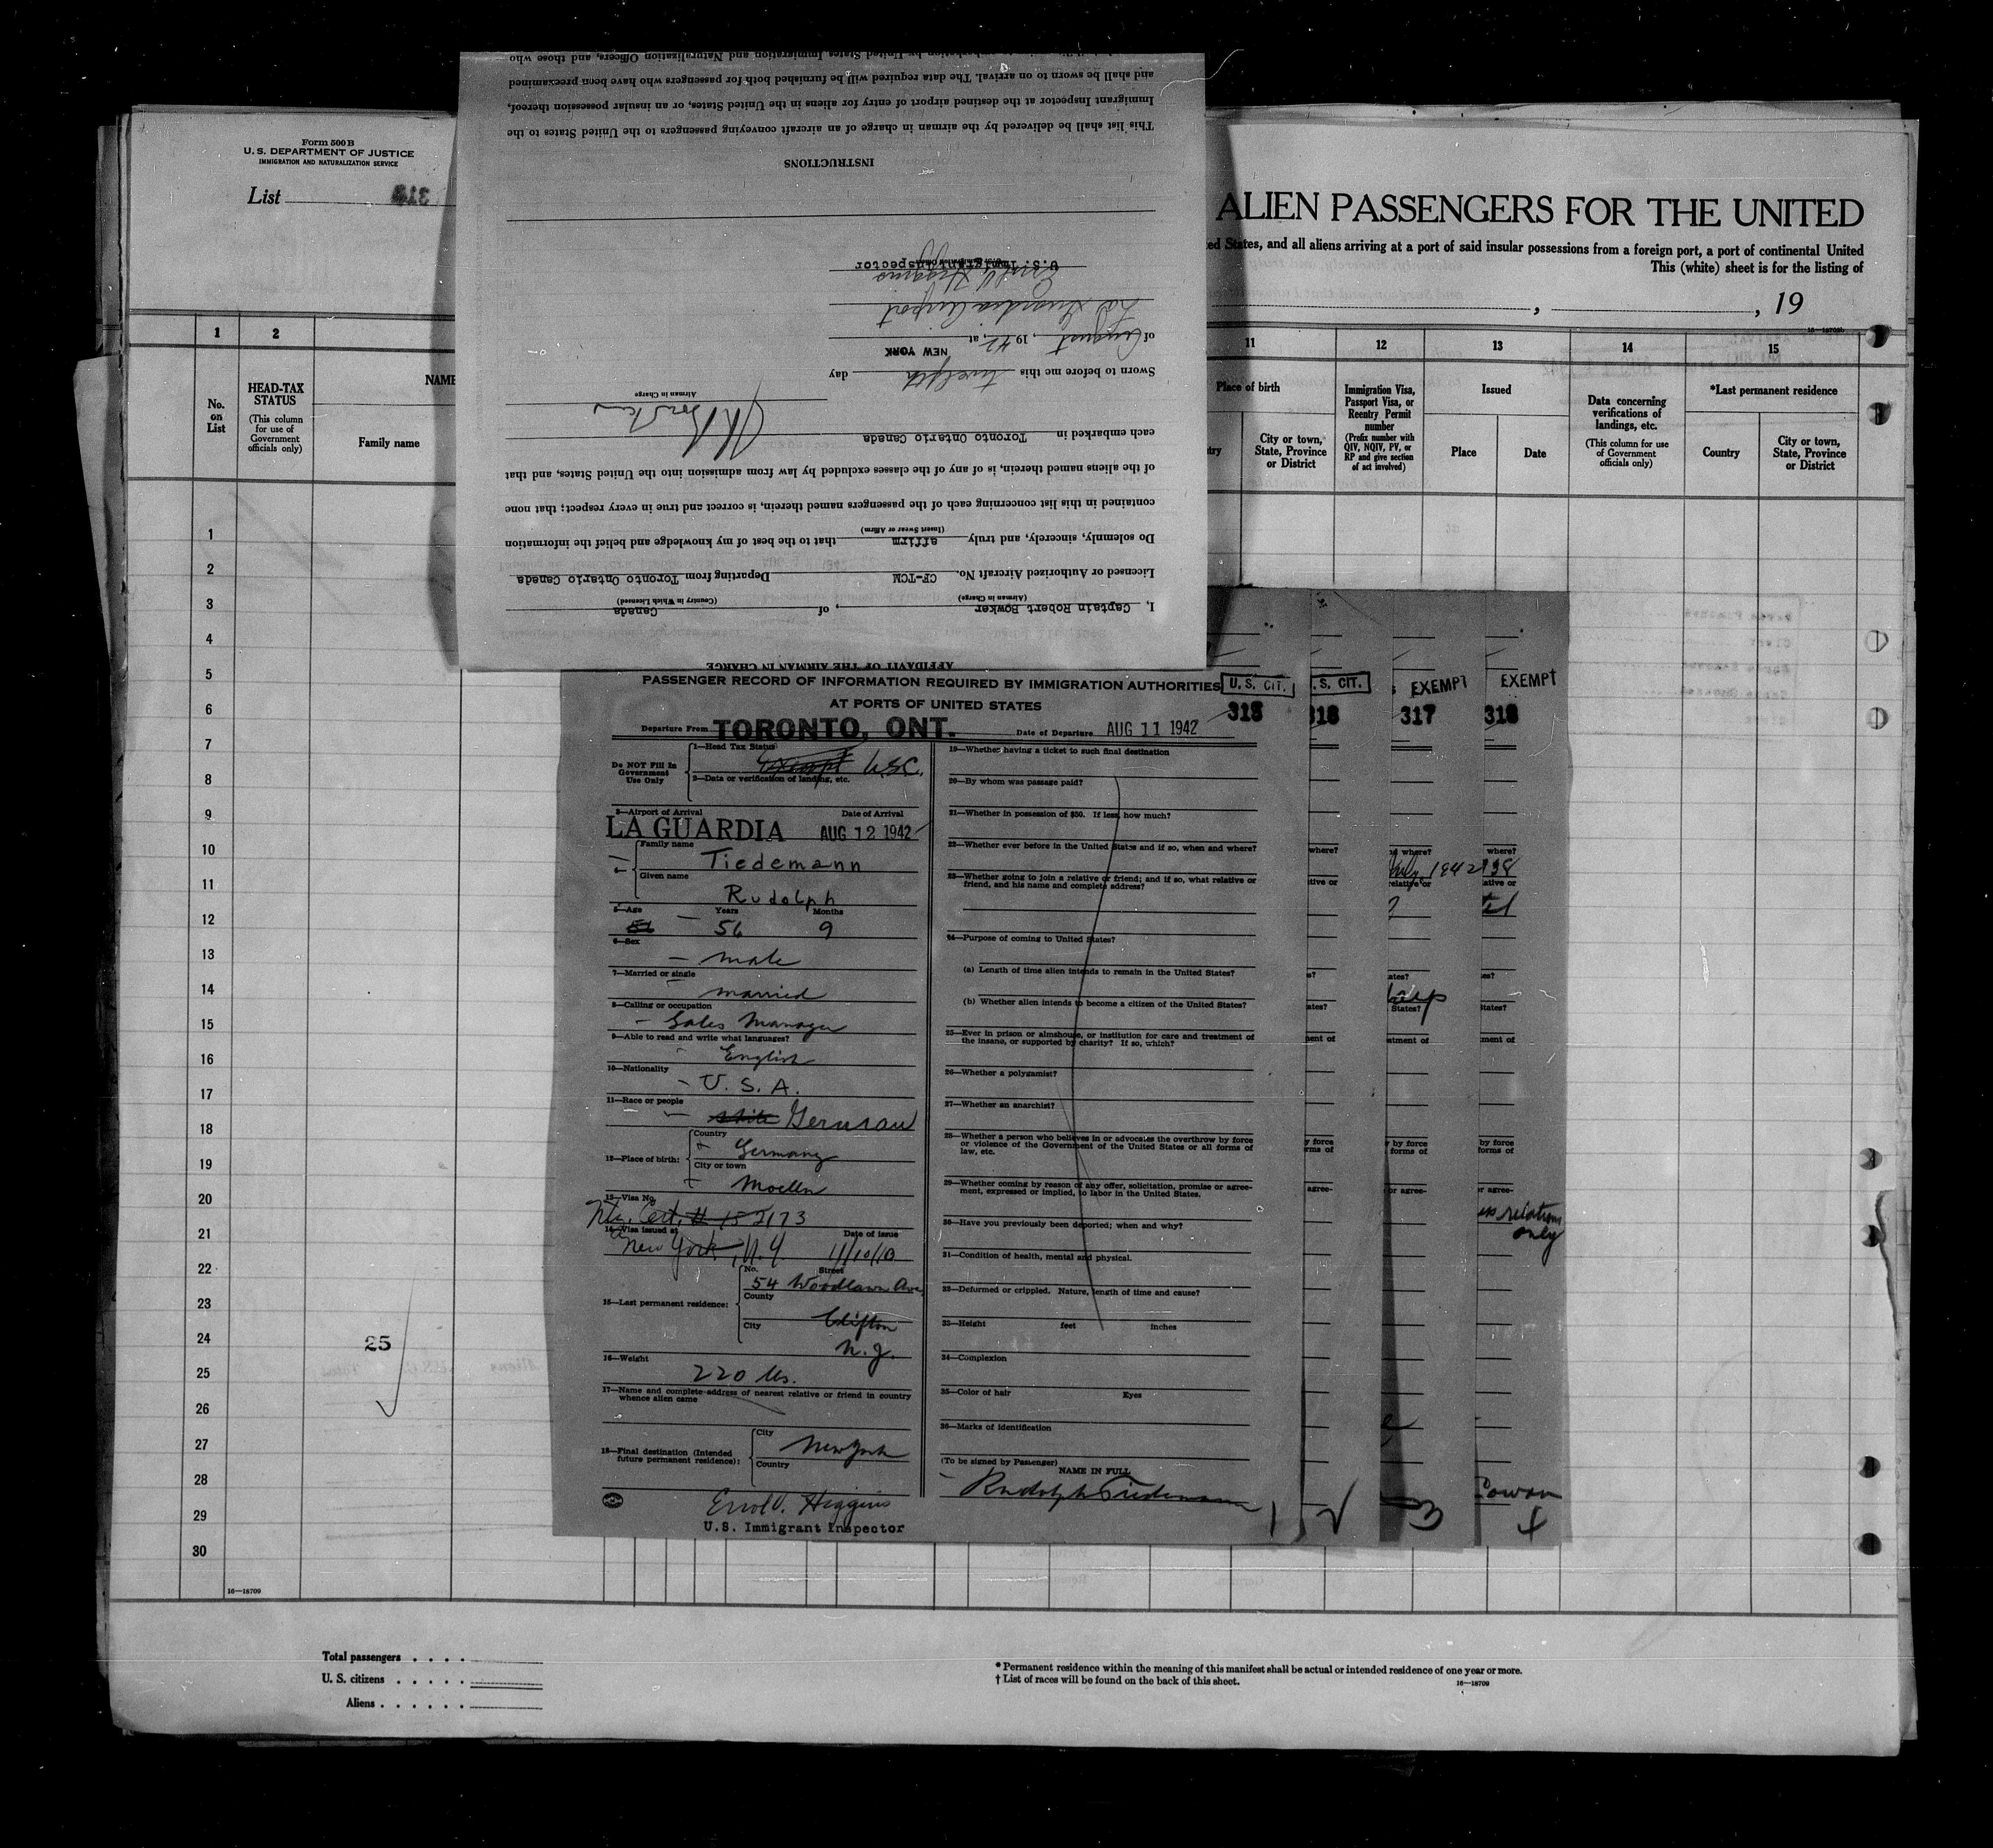 Form 500 B
U. S. DEPARTMENT OF JUSTICE
IMMIGRATION AND NATURALIZATION SERVICE
List
ALIEN PASSENGERS FOR THE UNITED
ed States, and all aliens arriving at a port of said insular possessions from a foreign port, a port of continental United
This (white) sheet is for the listing of
, , 19
16—18709
1 2 11 12 13 14 15
No. on List
HEAD-TAX STATUS
(This column for use of Government officials only)
NAME
Family name
Place of birth
City or town, State, Province or District
Immigration Visa, Passport Visa, or Reentry Permit number
(Prefix number with QIV, NQIV, PV, or RP and give section of act involved)
Issued
Place
Date
Data concerning verifications of landings, etc.
(This column for use of Government officials only)
*Last permanent residence
Country
City or town, State, Province or District
1
2
3
4
5
6
7
8
9
10
11
12
13
14
15
16
17
18
19
20
21
22
23
24
25
26
27
28
29
30
25
16—18709
Total passengers . . . .
U. S. citizens . . . . .
Aliens . . . . . .
* Permanent residence within the meaning of this manifest shall be actual or intended residence of one year or more.
† List of races will be found on the back of this sheet.
16—18709
AFFIDAVIT OF THE AIRMAN IN CHARGE
I, Captain Robert Bowker, of Canada
(Airman in Charge) (Country in Which Licensed)
Licensed or Authorized Aircraft No. CF-TCM Departing from Toronto Ontario Canada
Do solemnly, sincerely, and truly affirm that to the best of my knowledge and belief the information
(Insert Swear or Affirm)
contained in this list concerning each of the passengers named therein, is correct and true in every respect; that none
of the aliens named therein, is of any of the classes excluded by law from admission into the United States, and that
each embarked in Toronto Ontario Canada
Airman in Charge
Sworn to before me this twelfth day
NEW YORK
of August, 1942, at
La Guardia Airport
Errol V. Higgins
U.S. Immigrant Inspector
INSTRUCTIONS
This list shall be delivered by the airman in charge of an aircraft conveying passengers to the United States to the
Immigrant Inspector at the destined airport of entry for aliens in the United States, or an insular possession thereof,
and shall be sworn to on arrival. The data required will be furnished both for passengers who have been preexamined
by United States Immigration and Naturalization Officers, and those who
PASSENGER RECORD OF INFORMATION REQUIRED BY IMMIGRATION AUTHORITIES
AT PORTS OF UNITED STATES
U. S. CIT.
315
Departure From TORONTO, ONT. Date of Departure AUG 11 1942
Do NOT Fill In Government Use Only
1—Head Tax Status
Exempt USC.
2—Data or verification of landing, etc.
3—Airport of Arrival Date of Arrival
LA GUARDIA AUG 12 1942
Family name
Tiedemann
Given name
Rudolph
5—Age Years Months
56 9
6—Sex
male
7—Married or single
married
8—Calling or occupation
Sales Manager
9—Able to read and write what languages?
English
10—Nationality
U. S. A.
11—Race or people
white German
12—Place of birth:
Country
Germany
City or town
Moelln
13—Visa No.
Ntz. Cert. # 152173
14—Visa issued at Date of issue
New York, N.Y. 11/10/10
15—Last permanent residence:
No. Street
54 Woodlawn Ave
County
City
Clifton
N.J.
16—Weight
220 lbs.
17—Name and complete address of nearest relative or friend in country
whence alien came
18—Final destination (Intended future permanent residence):
City
New York
Country
Errol V. Higgins
U.S. Immigrant Inspector
19—Whether having a ticket to such final destination
20—By whom was passage paid?
21—Whether in possession of $50. If less, how much?
22—Whether ever before in the United States and if so, when and where?
23—Whether going to join a relative or friend; and if so, what relative or
friend, and his name and complete address?
24—Purpose of coming to United States?
(a) Length of time alien intends to remain in the United States?
(b) Whether alien intends to become a citizen of the United States?
25—Ever in prison or almshouse, or institution for care and treatment of
the insane, or supported by charity? If so, which?
26—Whether a polygamist?
27—Whether an anarchist?
28—Whether a person who believes in or advocates the overthrow by force
or violence of the Government of the United States or all forms of
law, etc.
29—Whether coming by reason of any offer, solicitation, promise or agree-
ment, expressed or implied, to labor in the United States.
30—Have you previously been deported; when and why?
31—Condition of health, mental and physical.
32—Deformed or crippled. Nature, length of time and cause?
33—Height feet inches
34—Complexion
35—Color of hair Eyes
36—Marks of identification
(To be signed by Passenger)
NAME IN FULL
Rudolph Tiedemann
. S. CIT.
316
where?
tive or
s?
ates?
ent of
y force
rms of
agree-
EXEMPT
317
where?
July 1942
relative or
ates?
States?
atment of
by force
forms of
or agree-
EXEMPT
318
where?
ative or
es?
States?
ment of
by force
forms of
or agree-
relations
only
Cowan